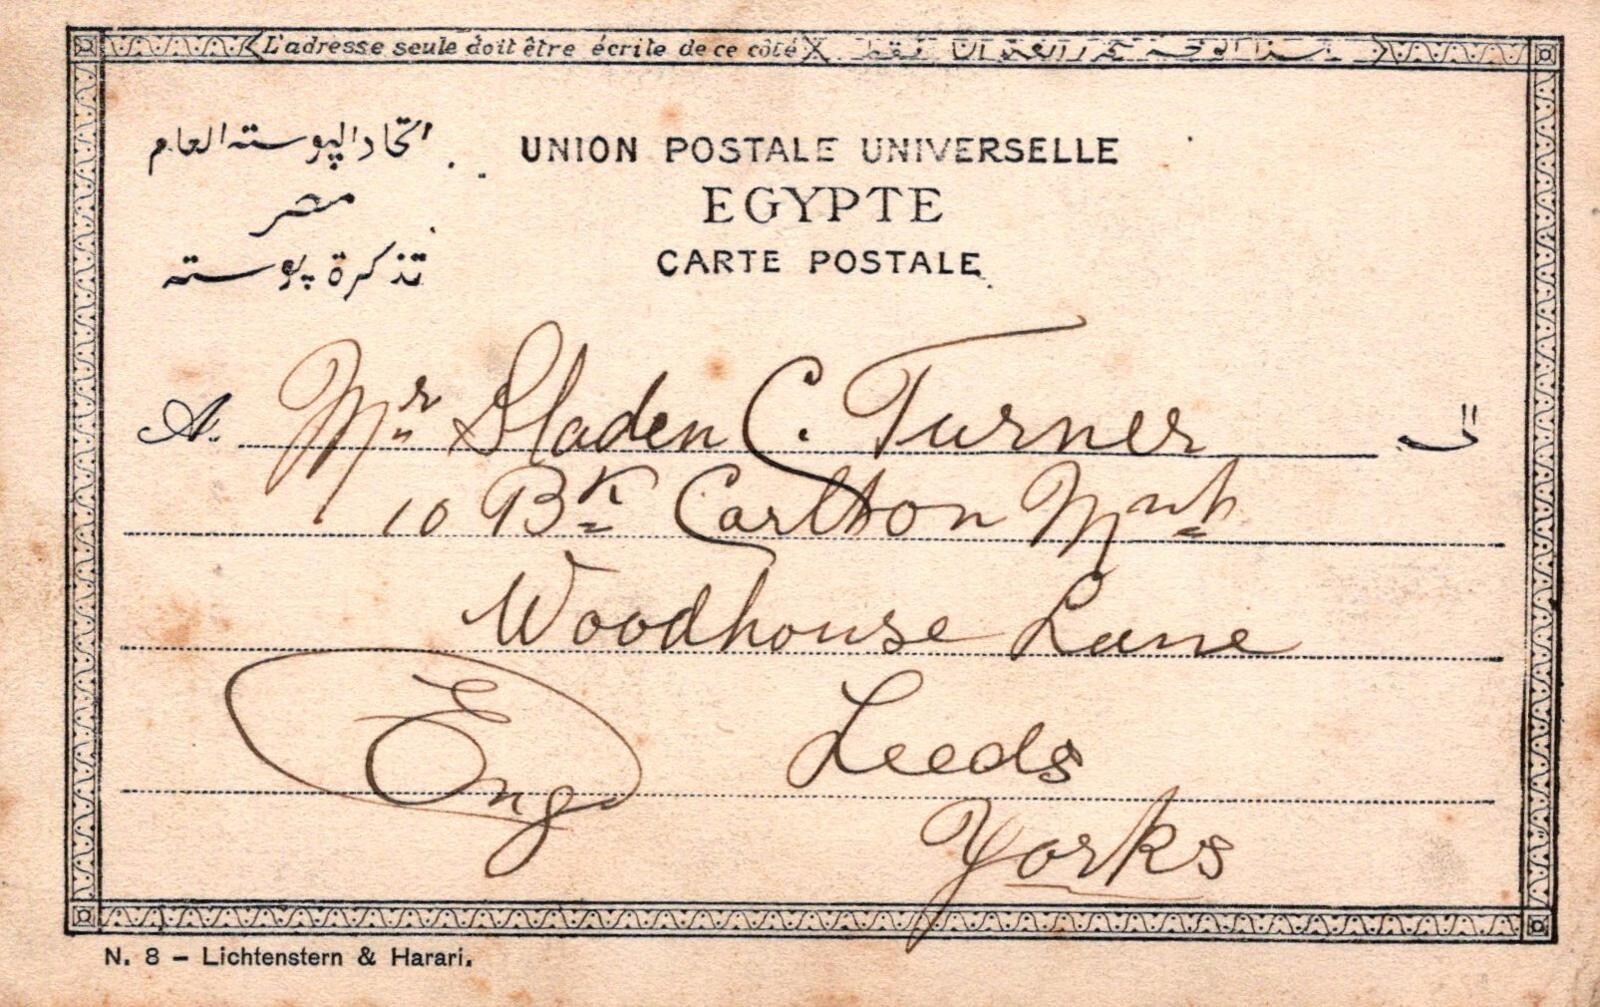 L'adresse seule doit être écrite de ce côté
اتحاد البوسته العام
UNION POSTALE UNIVERSELLE
مصر
EGYPTE
تذكرة بوسته
CARTE POSTALE
A. Mr Sladen C. Turner الى
10 Bk Carlton Mnt
Woodhouse Lane
Eng. Leeds
Yorks
N. 8 – Lichtenstern & Harari.